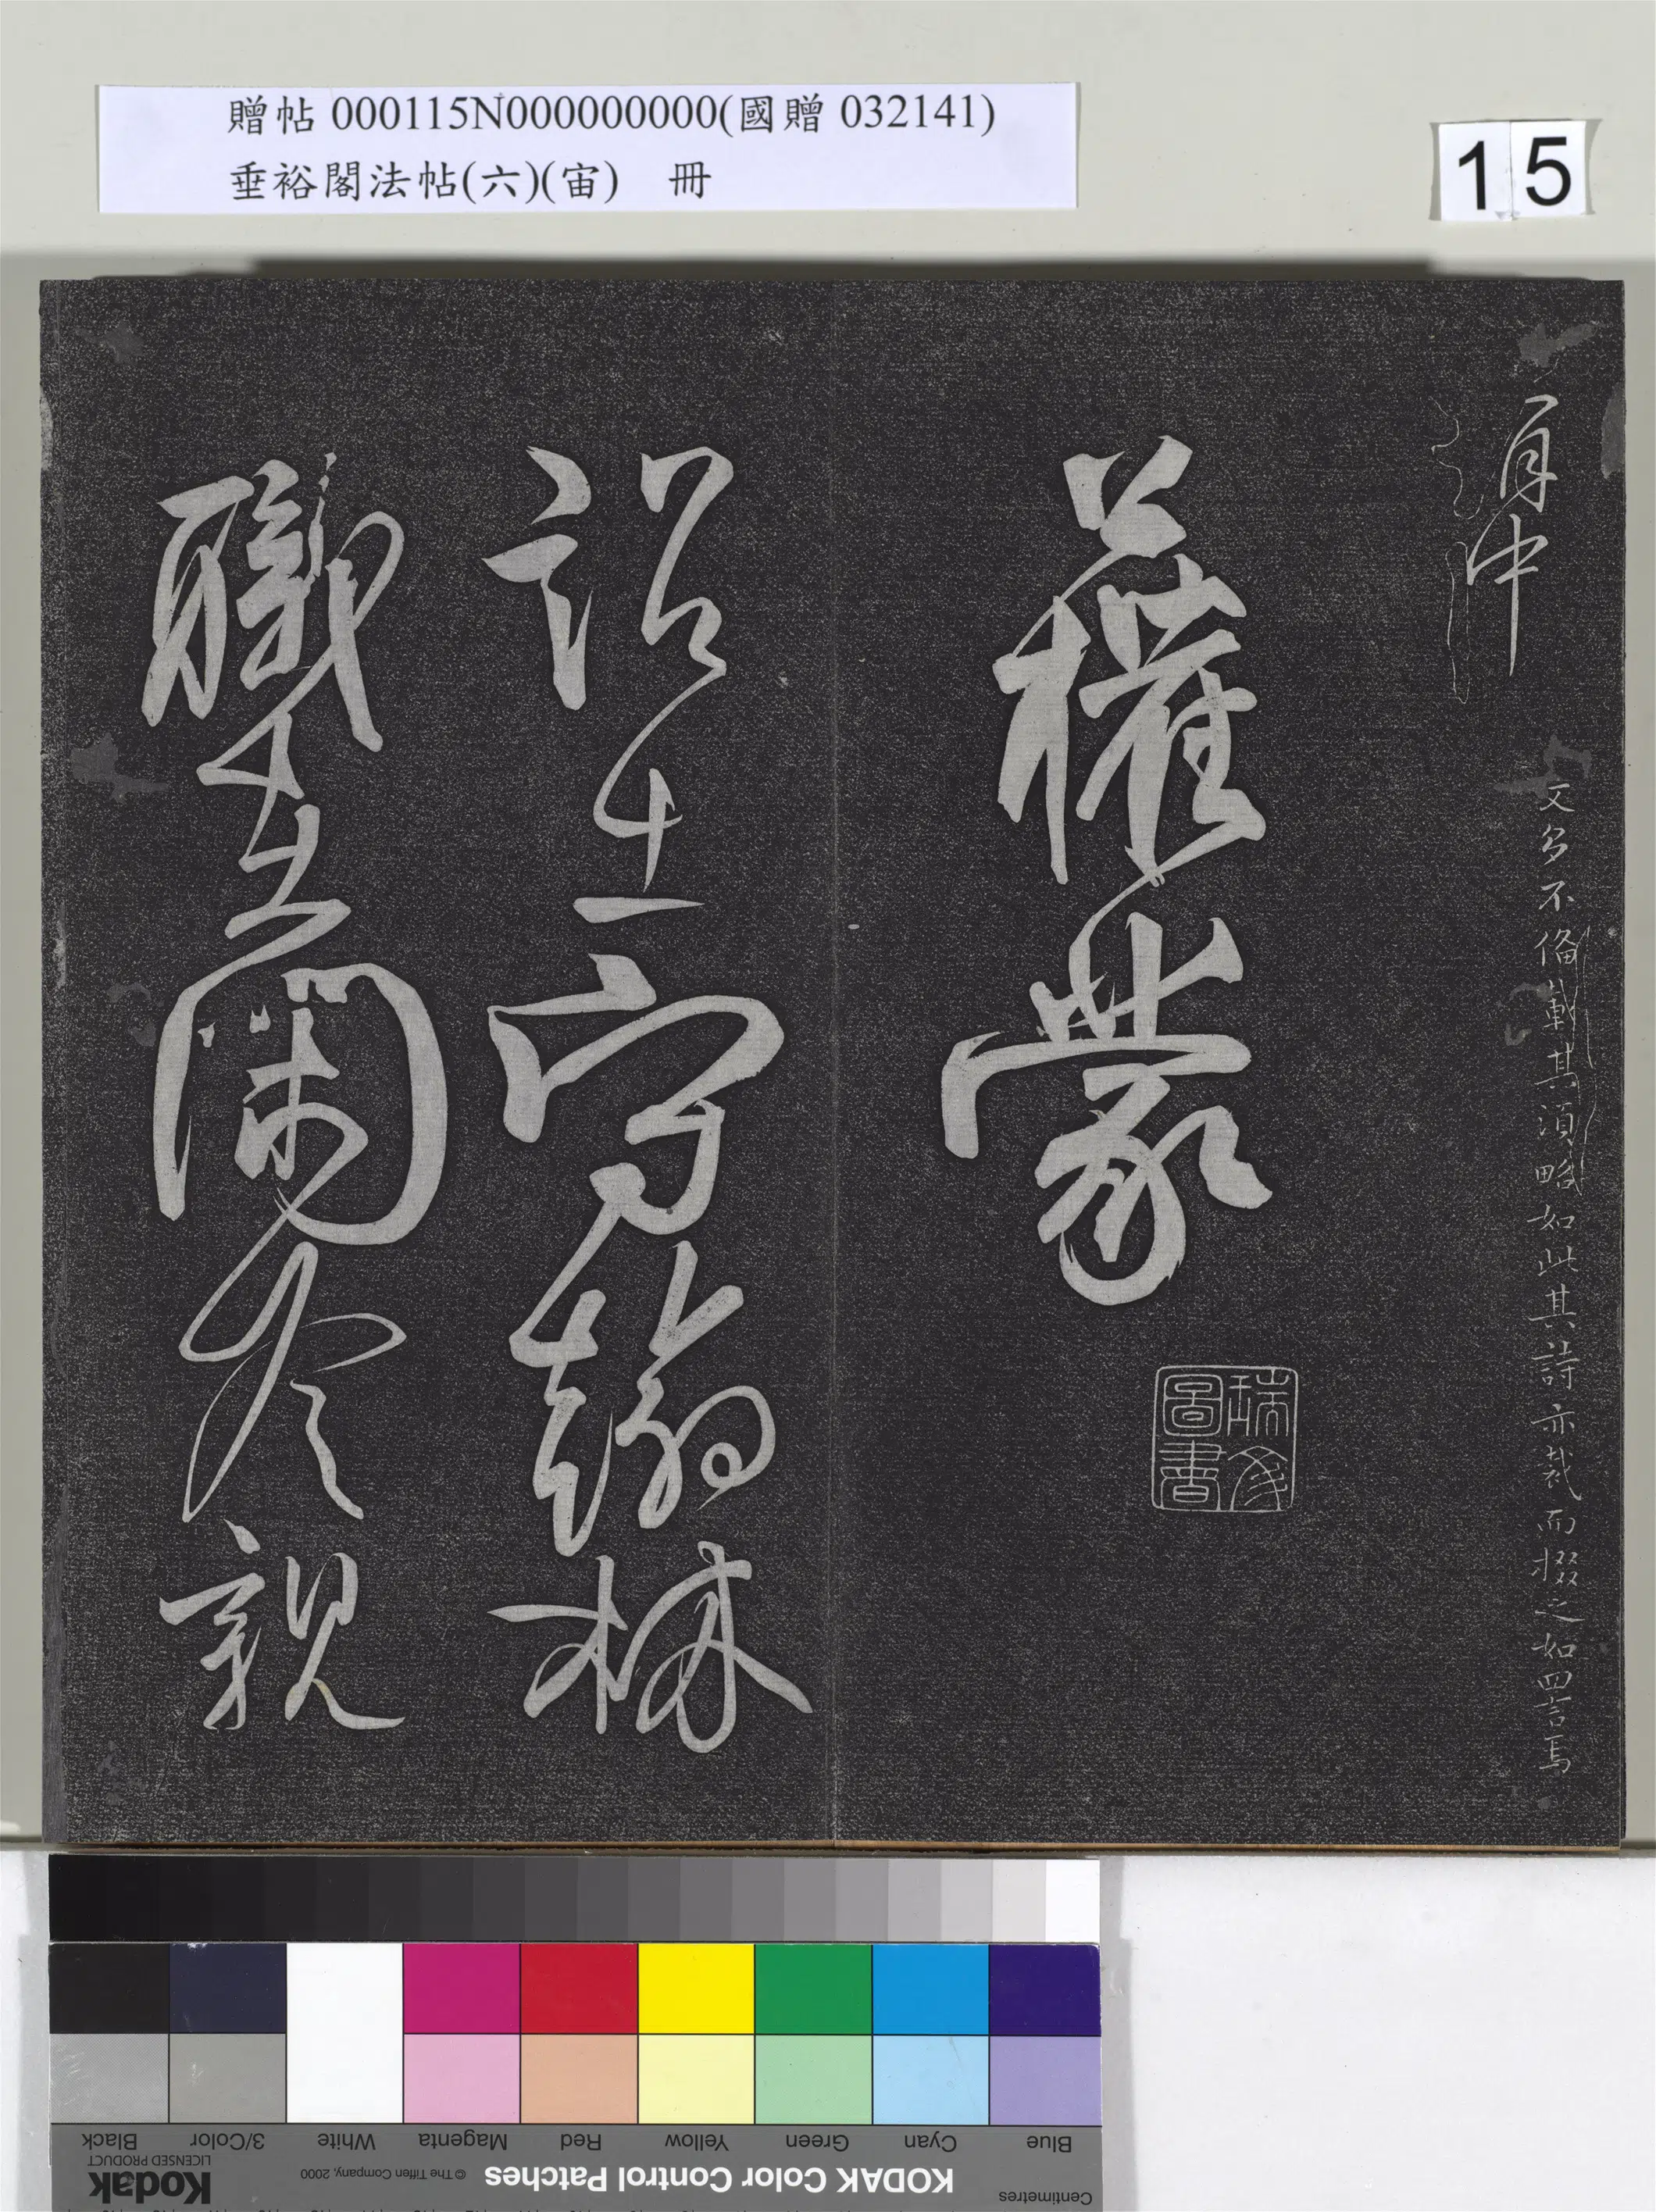 贈帖 000115N000000000(國贈 032141)
垂裕閣法帖(六)(宙) 冊
15
中
文多不備載其須略如此其詩亦裁而掇之如四言焉
權蒙
瑞
圖書
詔守翰林
職蘭
親
Blue
Cyan
Green
Yellow
Red
Magenta
White
3/Color
Black
Centimetres
KODAK Color Control Patches
© The Tiffen Company, 2000
Kodak
LICENSED PRODUCT